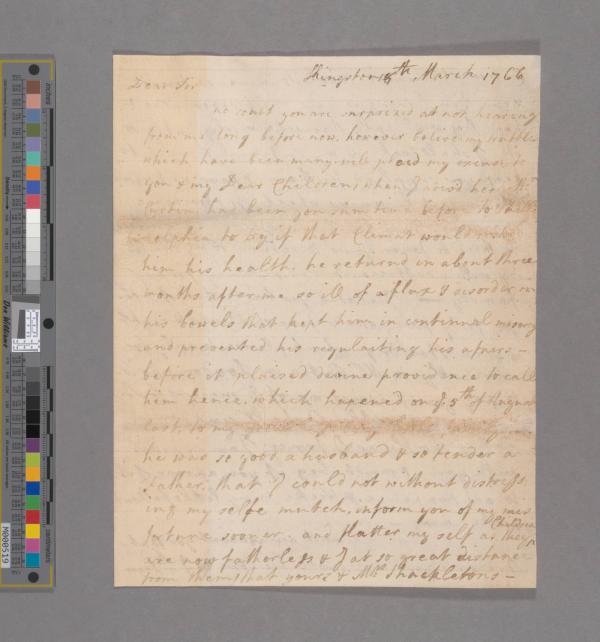 Kingston 18th March 1766
Dear Sir
no doubt you are surprised at not hearing
from me long before now, however belive my trubles
which have been many will plead my excuse to
you & my Dear Children, when I arived here Mr
Curtin had been gon sum time before to Phila
delphia to try if that Climat would
him his health. he returnd in about three
months after me so ill of a flux & disorder in
his bowels that kept him in continual misery
and prevented his regulaiting his afairs –
before it plaised devine providence to call
him hence, which hapened on ye 5th of August
last to my
he was so good a husband & so tender a
Father, that I could not without distress
ing my selfe mutch, inform you of my mis
fortune sooner. and flatter my self as they
Children
are now fatherless & I at so great distance
from them that yours & Mrs Shackletons –
inches
centimeters
M000519